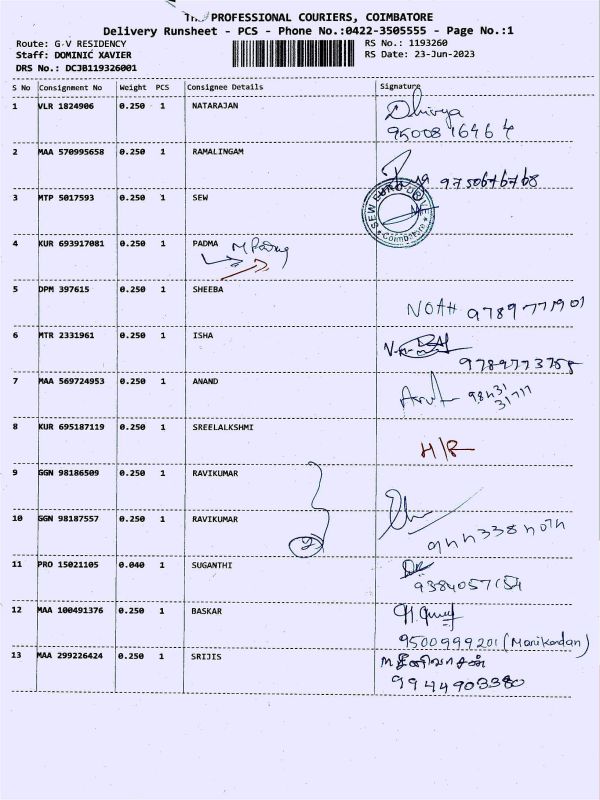 The PROFESSIONAL COURIERS, COIMBATORE
Delivery Runsheet - PCS - Phone No.:0422-3505555 - Page No.:1
Route: G-V RESIDENCY RS No.: 1193260
Staff: DOMINIC XAVIER RS Date: 23-Jun-2023
DRS No.: DCJB119326001
S No Consignment No Weight PCS Consignee Details Signature
1 VLR 1824906 0.250 1 NATARAJAN Dhivya
9500816464
2 MAA 570995658 0.250 1 RAMALINGAM
3 MTP 5017593 0.250 1 SEW
SEW EURODRIVE Coimbatore
4 KUR 693917081 0.250 1 PADMA
5 DPM 397615 0.250 1 SHEEBA
NOAH 9789771901
6 MTR 2331961 0.250 1 ISHA
7 MAA 569724953 0.250 1 ANAND
8 KUR 695187119 0.250 1 SREELALKSHMI
H/R
9 GGN 98186509 0.250 1 RAVIKUMAR
10 GGN 98187557 0.250 1 RAVIKUMAR
2
11 PRO 15021105 0.040 1 SUGANTHI
12 MAA 100491376 0.250 1 BASKAR
9500999201 (Manikandan)
13 MAA 299226424 0.250 1 SRIJIS
9944903380